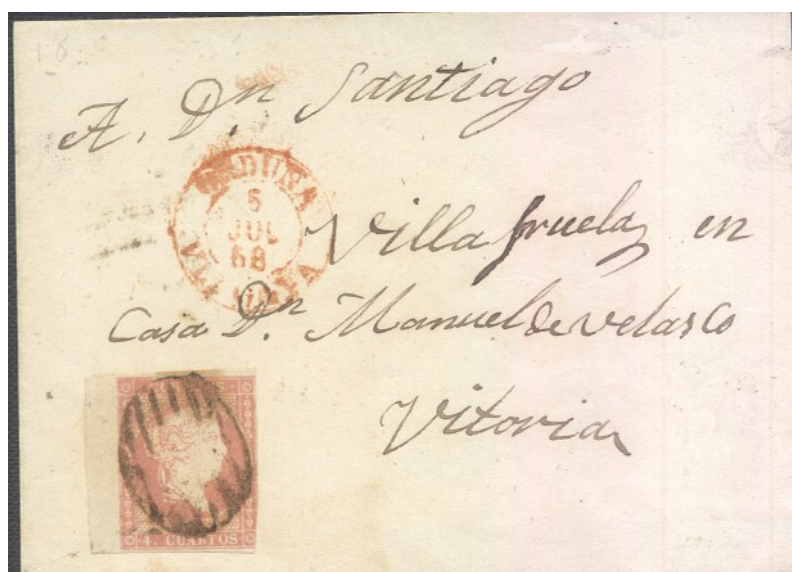 A. Dn. Santiago
5
JUL
Villafruela en
Casa Dn. Manuel de velasco
Vitoria
4. CUARTOS